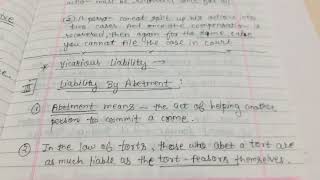 (2) A person cannot split up his action into
two cases and once the compensation is
recovered, then again for the same case
you cannot file the case in court
* Vicarious Liability →
III Liability By Abetment :
① Abetment means - the act of helping another
person to commit a crime.
② In the law of torts, those who abet a tort are
as much liable as the tort-feasors themselves.